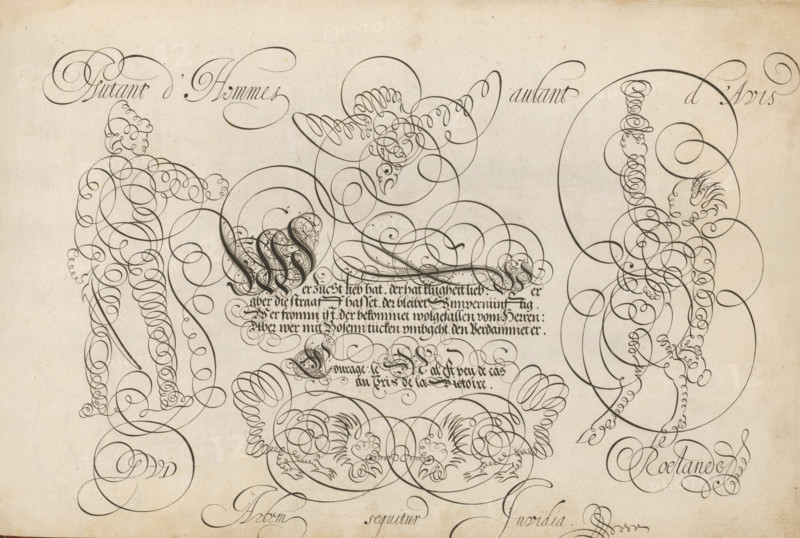 Autant d'Hommes autant d'Avis
Wer zucht lieb hat, der hat klugheit lieb: Wer
aber die straaf hasset, der bleibet Unvernünftig
Wer fromm ist, der bekommet wolgefallen vom Herren:
Aber wer mit Bosenn tucken umbgeht den Verdammet er.
Courage: le Mal est peu de cas
au Pris de la Victoire.
Roelands
Artem sequitur Invidia.